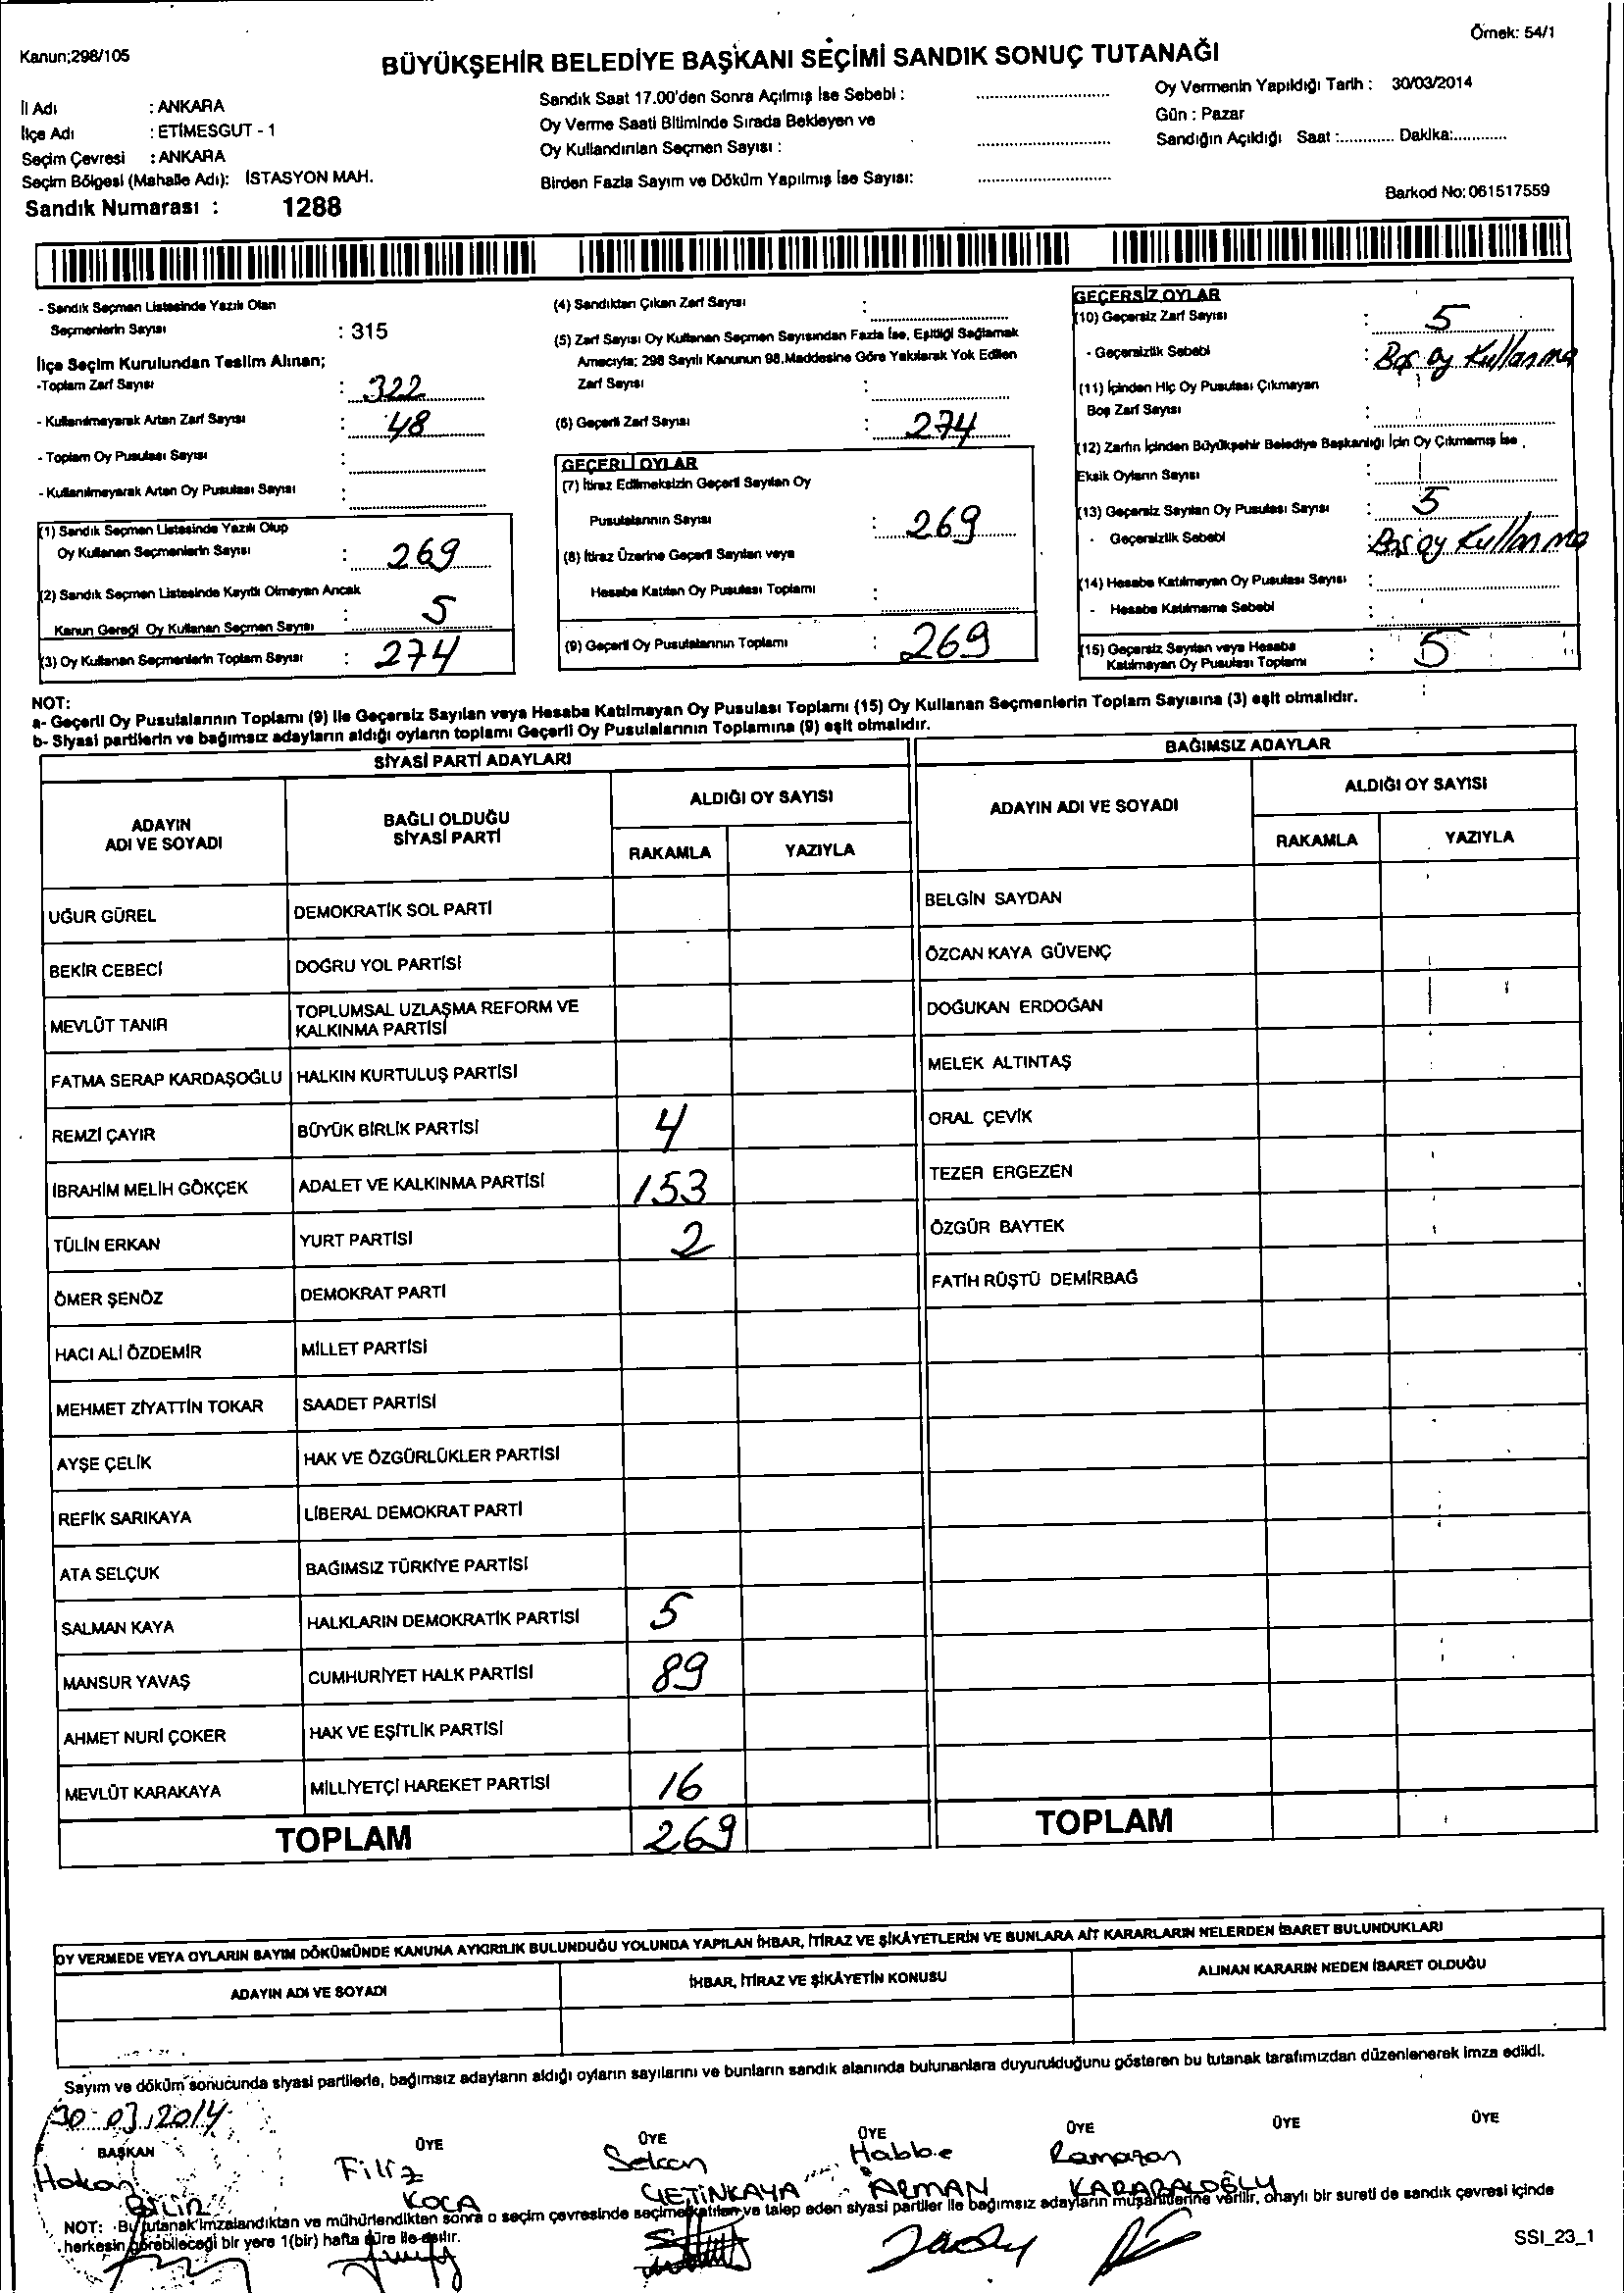 Kanun;298/105
Örnek: 54/1
BÜYÜKŞEHİR BELEDİYE BAŞKANI SEÇİMİ SANDIK SONUÇ TUTANAĞI
İl Adı : ANKARA
İlçe Adı : ETİMESGUT - 1
Seçim Çevresi : ANKARA
Seçim Bölgesi (Mahalle Adı): İSTASYON MAH.
Sandık Numarası : 1288
Sandık Saat 17.00'den Sonra Açılmış İse Sebebi :
Oy Verme Saati Bitiminde Sırada Bekleyen ve
Oy Kullandırılan Seçmen Sayısı :
Birden Fazla Sayım ve Döküm Yapılmış İse Sayısı:
Oy Vermenin Yapıldığı Tarih : 30/03/2014
Gün : Pazar
Sandığın Açıldığı Saat :............. Dakika:............
Barkod No: 061517559
- Sandık Seçmen Listesinde Yazılı Olan
Seçmenlerin Sayısı : 315
İlçe Seçim Kurulundan Teslim Alınan;
-Toplam Zarf Sayısı : 322
- Kullanılmayarak Artan Zarf Sayısı : 48
- Toplam Oy Pusulası Sayısı :
- Kullanılmayarak Artan Oy Pusulası Sayısı :
(1) Sandık Seçmen Listesinde Yazılı Olup
Oy Kullanan Seçmenlerin Sayısı : 269
(2) Sandık Seçmen Listesinde Kayıtlı Olmayan Ancak
Kanun Gereği Oy Kullanan Seçmen Sayısı : 5
(3) Oy Kullanan Seçmenlerin Toplam Sayısı : 274
(4) Sandıktan Çıkan Zarf Sayısı :
(5) Zarf Sayısı Oy Kullanan Seçmen Sayısından Fazla İse, Eşitliği Sağlamak
Amacıyla; 298 Sayılı Kanunun 98.Maddesine Göre Yakılarak Yok Edilen
Zarf Sayısı :
(6) Geçerli Zarf Sayısı : 274
GEÇERLİ OYLAR
(7) İtiraz Edilmeksizin Geçerli Sayılan Oy
Pusulalarının Sayısı : 269
(8) İtiraz Üzerine Geçerli Sayılan veya
Hesaba Katılan Oy Pusulası Toplamı :
(9) Geçerli Oy Pusulalarının Toplamı : 269
GEÇERSİZ OYLAR
(10) Geçersiz Zarf Sayısı : 5
- Geçersizlik Sebebi : Boş oy Kullanma
(11) İçinden Hiç Oy Pusulası Çıkmayan
Boş Zarf Sayısı :
(12) Zarfın İçinden Büyükşehir Belediye Başkanlığı İçin Oy Çıkmamış İse ,
Eksik Oyların Sayısı :
(13) Geçersiz Sayılan Oy Pusulası Sayısı : 5
- Geçersizlik Sebebi : Boş oy Kullanma
(14) Hesaba Katılmayan Oy Pusulası Sayısı :
- Hesaba Katılmama Sebebi :
(15) Geçersiz Sayılan veya Hesaba
Katılmayan Oy Pusulası Toplamı : 5
NOT:
a- Geçerli Oy Pusulalarının Toplamı (9) ile Geçersiz Sayılan veya Hesaba Katılmayan Oy Pusulası Toplamı (15) Oy Kullanan Seçmenlerin Toplam Sayısına (3) eşit olmalıdır.
b- Siyasi partilerin ve bağımsız adayların aldığı oyların toplamı Geçerli Oy Pusulalarının Toplamına (9) eşit olmalıdır.
SİYASİ PARTİ ADAYLARI
ADAYIN ADI VE SOYADI
BAĞLI OLDUĞU SİYASİ PARTİ
ALDIĞI OY SAYISI
RAKAMLA YAZIYLA
UĞUR GÜREL DEMOKRATİK SOL PARTİ
BEKİR CEBECİ DOĞRU YOL PARTİSİ
MEVLÜT TANIR TOPLUMSAL UZLAŞMA REFORM VE KALKINMA PARTİSİ
FATMA SERAP KARDAŞOĞLU HALKIN KURTULUŞ PARTİSİ
REMZİ ÇAYIR BÜYÜK BİRLİK PARTİSİ 4
İBRAHİM MELİH GÖKÇEK ADALET VE KALKINMA PARTİSİ 153
TÜLİN ERKAN YURT PARTİSİ 2
ÖMER ŞENÖZ DEMOKRAT PARTİ
HACI ALİ ÖZDEMİR MİLLET PARTİSİ
MEHMET ZİYATTİN TOKAR SAADET PARTİSİ
AYŞE ÇELİK HAK VE ÖZGÜRLÜKLER PARTİSİ
REFİK SARIKAYA LİBERAL DEMOKRAT PARTİ
ATA SELÇUK BAĞIMSIZ TÜRKİYE PARTİSİ
SALMAN KAYA HALKLARIN DEMOKRATİK PARTİSİ 5
MANSUR YAVAŞ CUMHURİYET HALK PARTİSİ 89
AHMET NURİ ÇOKER HAK VE EŞİTLİK PARTİSİ
MEVLÜT KARAKAYA MİLLİYETÇİ HAREKET PARTİSİ 16
TOPLAM 269
BAĞIMSIZ ADAYLAR
ADAYIN ADI VE SOYADI
ALDIĞI OY SAYISI
RAKAMLA YAZIYLA
BELGİN SAYDAN
ÖZCAN KAYA GÜVENÇ
DOĞUKAN ERDOĞAN
MELEK ALTINTAŞ
ORAL ÇEVİK
TEZER ERGEZEN
ÖZGÜR BAYTEK
FATİH RÜŞTÜ DEMİRBAĞ
TOPLAM
OY VERMEDE VEYA OYLARIN SAYIM DÖKÜMÜNDE KANUNA AYKIRILIK BULUNDUĞU YOLUNDA YAPILAN İHBAR, İTİRAZ VE ŞİKÂYETLERİN VE BUNLARA AİT KARARLARIN NELERDEN İBARET BULUNDUKLARI
ADAYIN ADI VE SOYADI
İHBAR, İTİRAZ VE ŞİKÂYETİN KONUSU
ALINAN KARARIN NEDEN İBARET OLDUĞU
Sayım ve döküm sonucunda siyasi partilerle, bağımsız adayların aldığı oyların sayılarını ve bunların sandık alanında bulunanlara duyurulduğunu gösteren bu tutanak tarafımızdan düzenlenerek imza edildi.
30.03.2014
BAŞKAN ÜYE ÜYE ÜYE ÜYE ÜYE ÜYE
Hakan Filiz Selcan Habbe Ramazan
BİLİR KOCA ÇETİNKAYA ARMAN KARARALOĞLU
NOT: Bu tutanak imzalandıktan ve mühürlendikten sonra o seçim çevresinde seçime katılan ve talep eden siyasi partiler ile bağımsız adayların müşahitlerine verilir, onaylı bir sureti de sandık çevresi içinde
herkesin görebileceği bir yere 1(bir) hafta süre ile asılır.
SSI_23_1